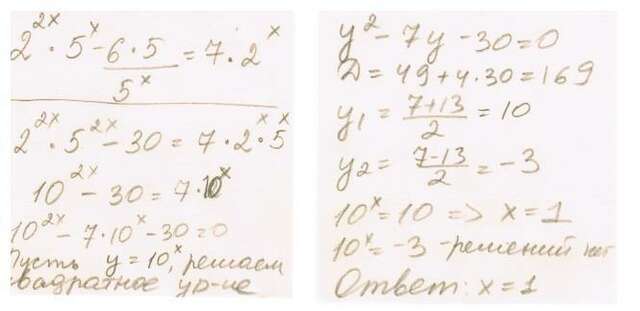 2²ˣ · 5ˣ - 6·5 / 5ˣ = 7·2ˣ
2²ˣ · 5²ˣ - 30 = 7·2ˣ·5ˣ
10²ˣ - 30 = 7·10ˣ
10²ˣ - 7·10ˣ - 30 = 0
Пусть y = 10ˣ, решаем
квадратное ур-ие
y² - 7y - 30 = 0
D = 49 + 4·30 = 169
y₁ = (7+13)/2 = 10
y₂ = (7-13)/2 = -3
10ˣ = 10 => x = 1
10ˣ = -3 - решений нет
Ответ: x = 1